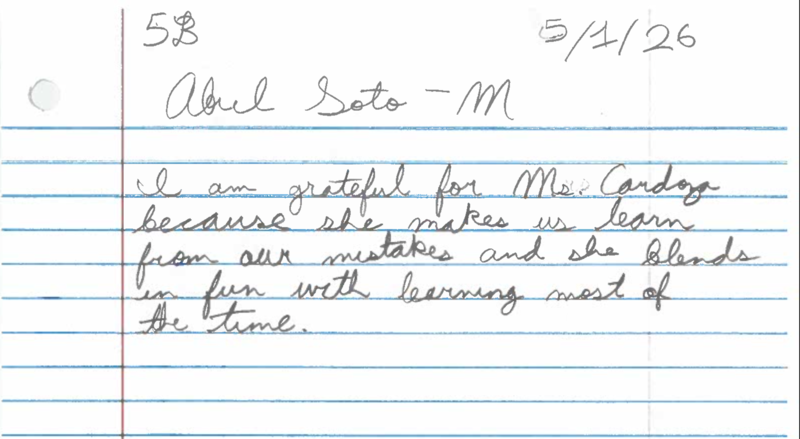 5B 5/1/26
Abel Soto - M
I am grateful for Ms. Cardoza
because she makes us learn
from our mistakes and she blends
in fun with learning most of
the time.